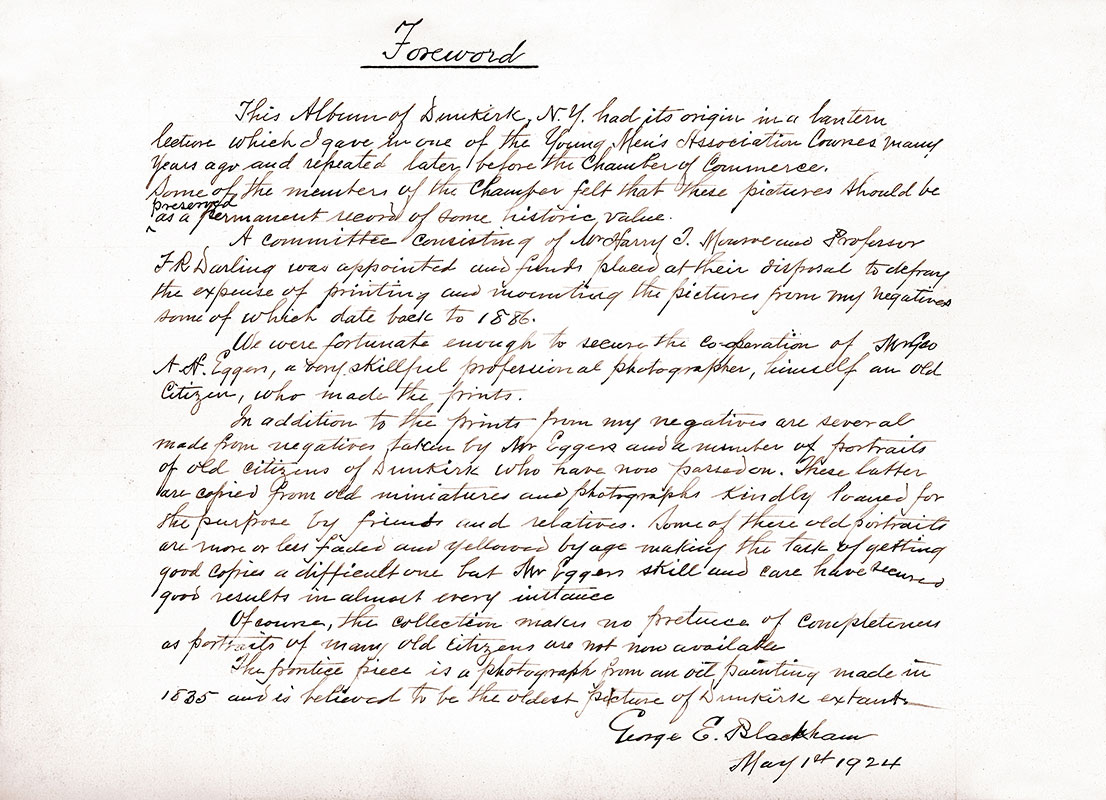 Foreword
This Album of Dunkirk, N.Y. had its origin in a lantern
lecture which I gave in one of the Young Men's Association Courses many
years ago and repeated later before the Chamber of Commerce.
Some of the members of the Chamber felt that these pictures should be
preserved
as a permanent record of some historic value.
A committee consisting of Mr Harry T. Monroe and Professor
F R Darling was appointed and funds placed at their disposal to defray
the expense of printing and mounting the pictures from my negatives
some of which date back to 1886.
We were fortunate enough to secure the co-operation of Mr Geo
A H. Eggers, a very skillful professional photographer, himself an old
Citizen, who made the prints.
In addition to the prints from my negatives are several
made from negatives taken by Mr Eggers and a number of portraits
of old citizens of Dunkirk who have now passed on. These latter
are copied from old miniatures and photographs kindly loaned for
the purpose by friends and relatives. Some of these old portraits
are more or less faded and yellowed by age making the task of getting
good copies a difficult one but Mr Eggers skill and care have secured
good results in almost every instance
Of course, the collection makes no pretence of completeness
as portraits of many old citizens are not now available
The frontice piece is a photograph from an oil painting made in
1835 and is believed to be the oldest picture of Dunkirk extant
George E. Blackham
May 1st 1924